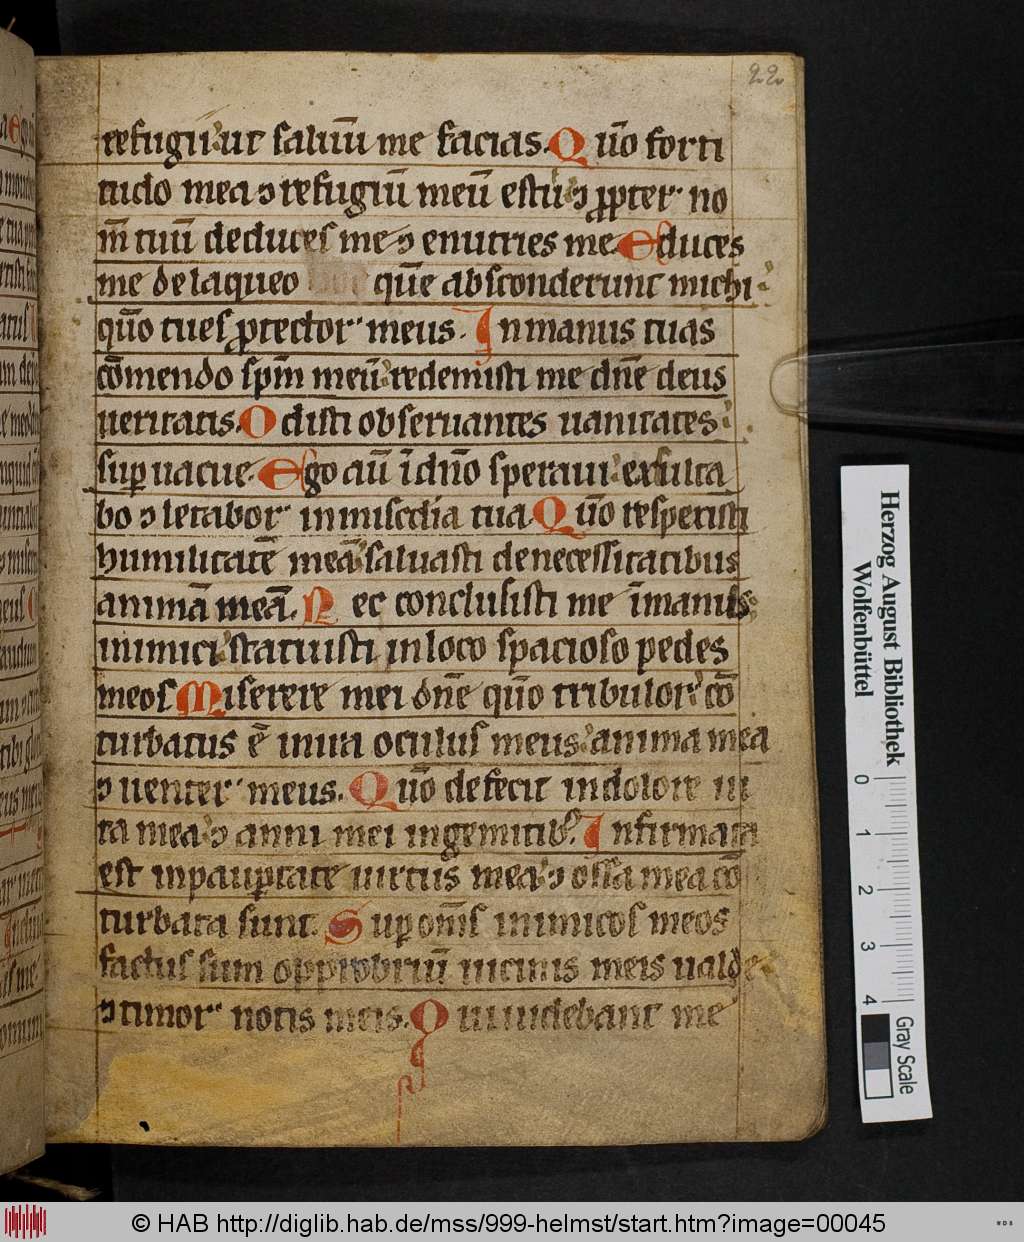 22
refugii ut saluū me facias. Qm̄ forti
tudo mea ⁊ refugiū meū es tu ⁊ ꝓpter no
m̄ tuū deduces me ⁊ enutries me Educes
me de laqueo quē absconderunt michi
qm̄o tu es ꝓtector meus. In manus tuas
cōmendo spm̄ meū redemisti me dn̄e deus
ueritatis. Odisti obseruantes uanitates
suꝑuacue. Ego aū ī dn̄o speraui exulta
bo ⁊ letabor in misc̄dia tua. Qūo respexisti
humilitatē meā saluasti de necessitatibus
animā meā. Nec conclusisti me ī manus
inimici statuisti in loco spacioso pedes
meos Miserere mei dn̄e qūo tribulor cō
turbatus ē in ira oculus meus anima mea
⁊ uenter meus. Qūo defecit in dolore ui
ta mea ⁊ anni mei in gemitibꝰ Infirmata
est in pauꝑtate uirtus mea ⁊ ossa mea cō
turbata sunt. Suꝑ om̄s inimicos meos
factus sum opprobriū uicinis meis ualde
⁊ timor notis meis. Qui uidebant me
Herzog August Bibliothek
Wolfenbüttel
0 1 2 3 4
Gray Scale
© HAB http://diglib.hab.de/mss/999-helmst/start.htm?image=00045